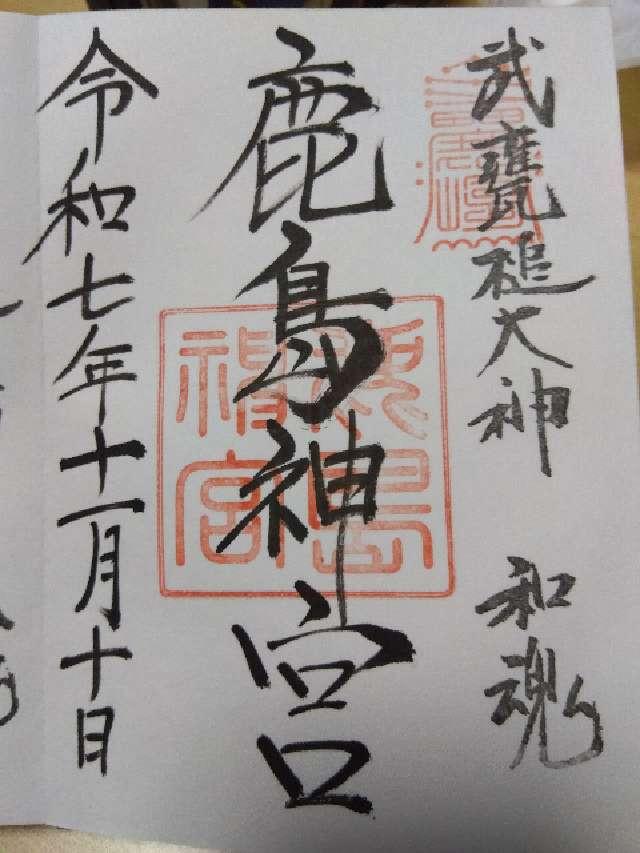 武甕槌大神 和魂
鹿島神宮
鹿島神宮
令和七年十一月十日